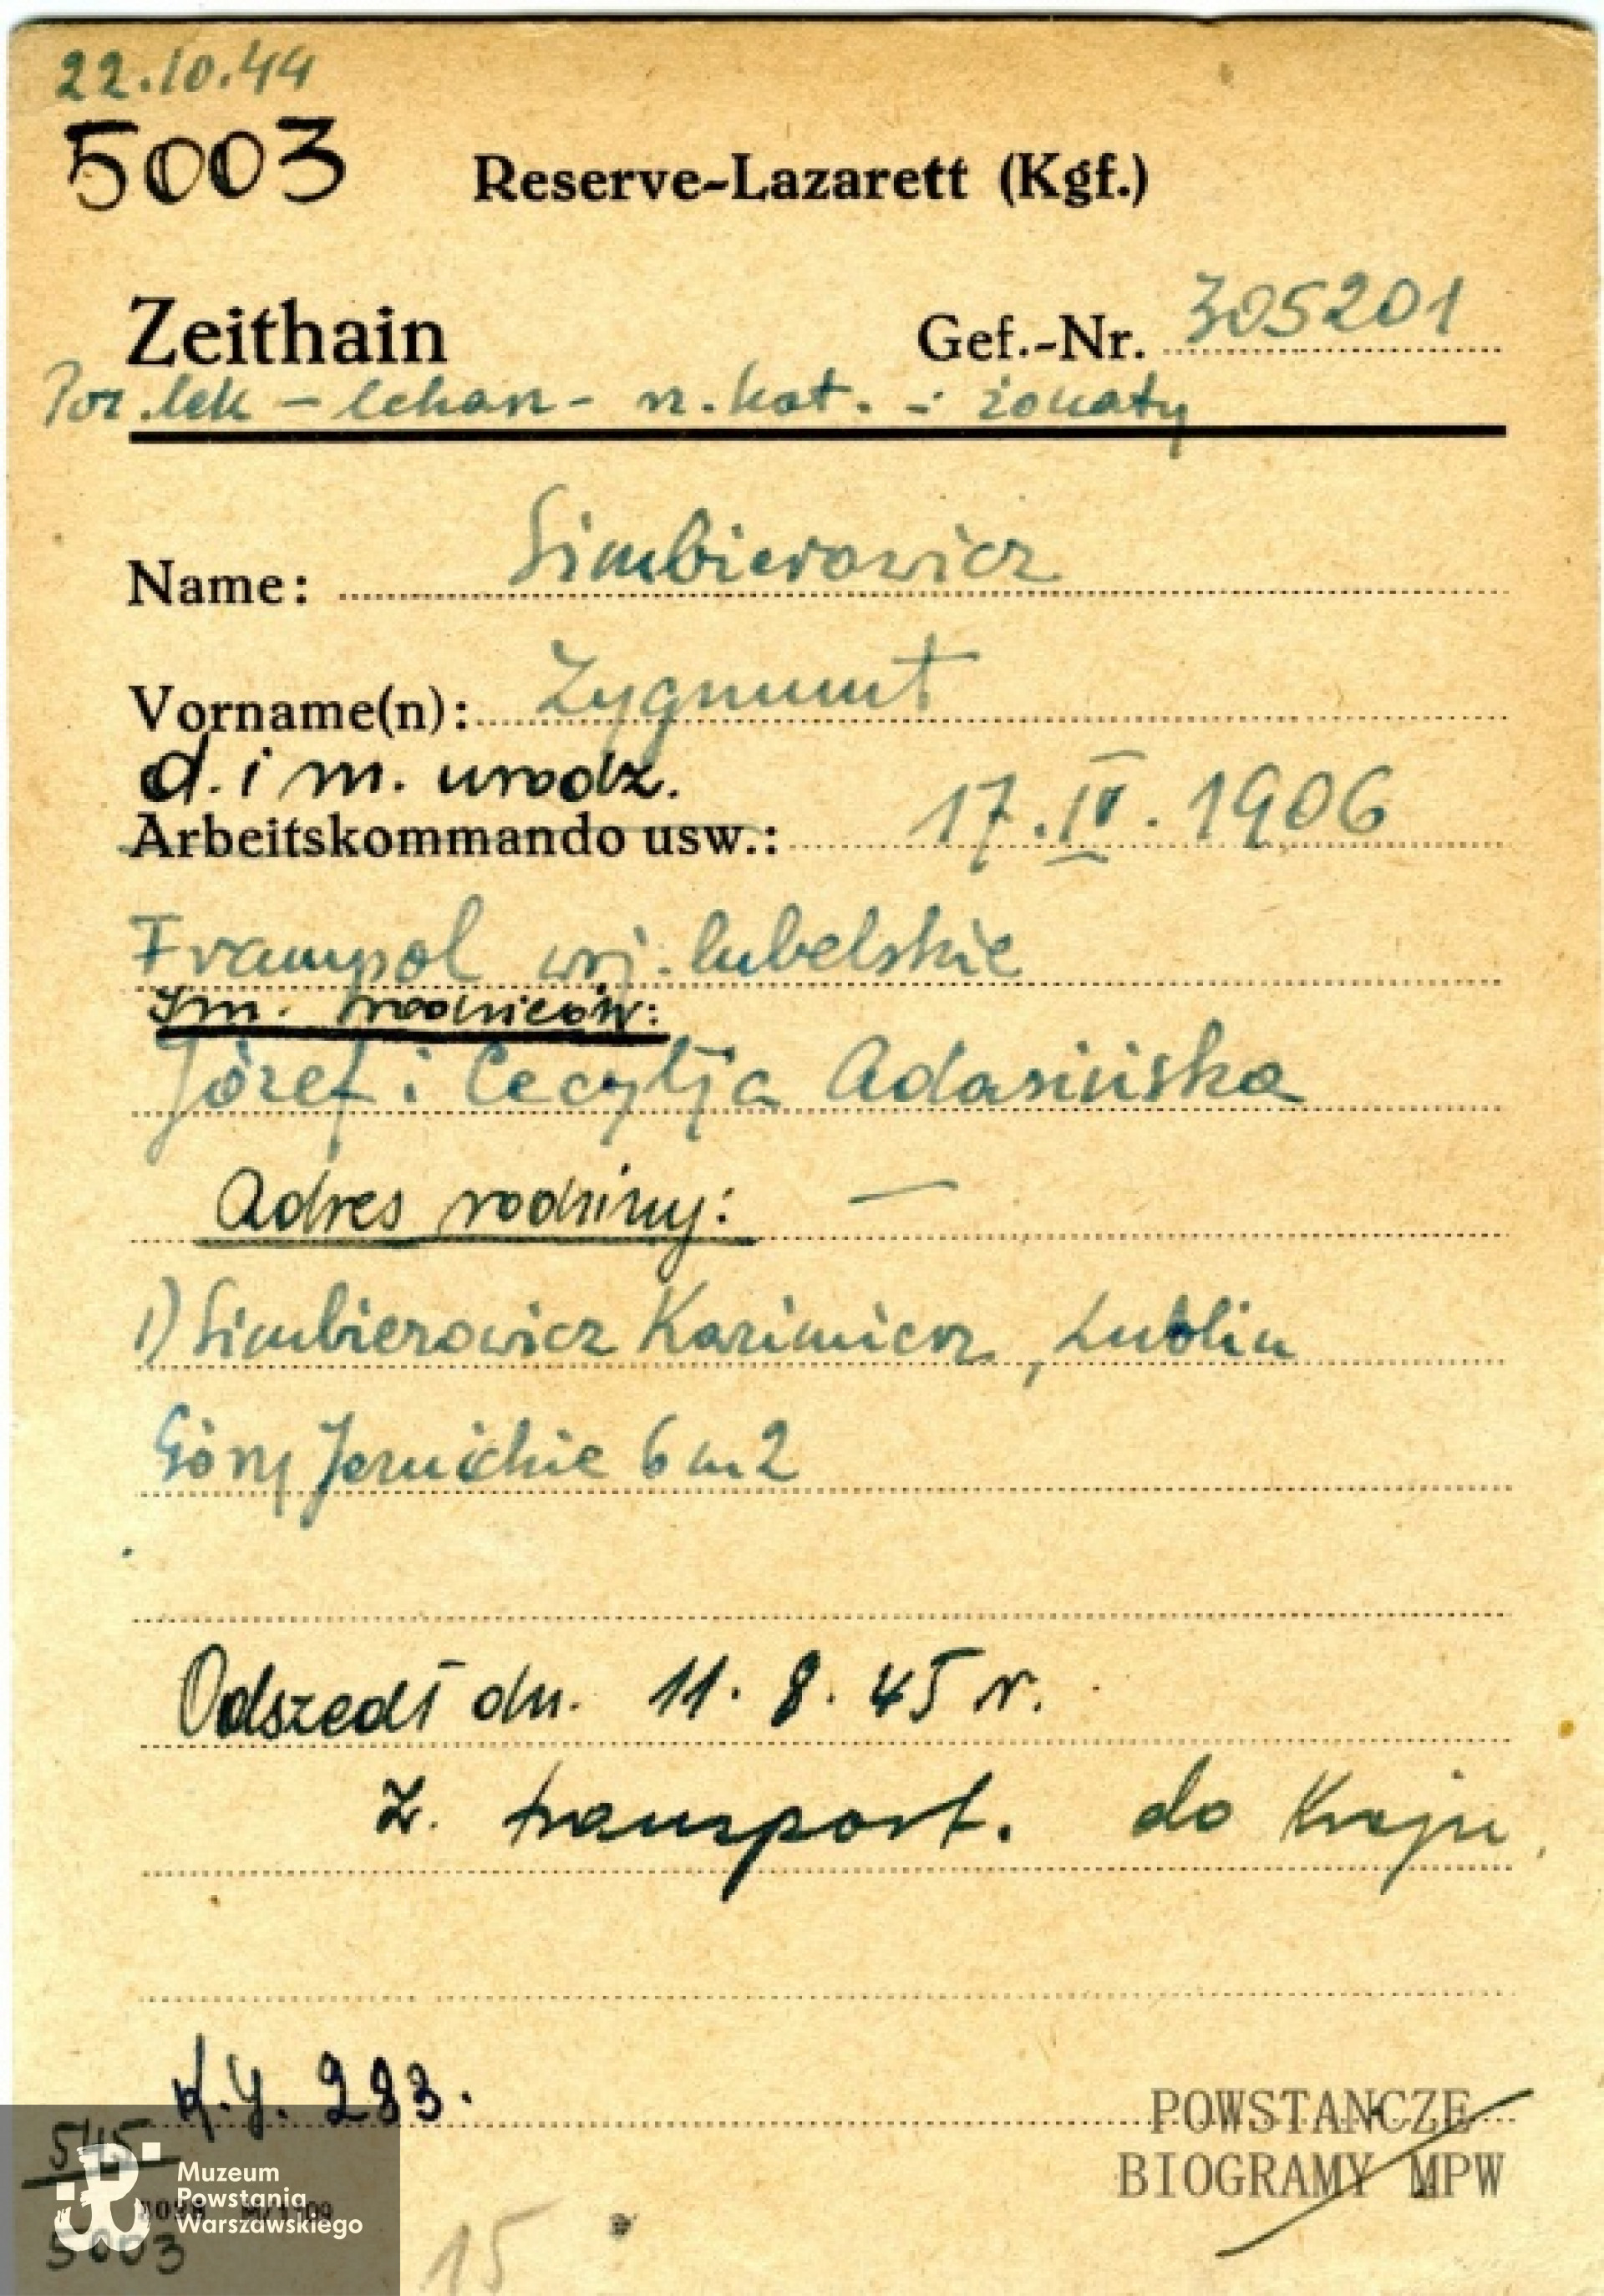 22.10.44
5003 Reserve-Lazarett (Kgf.)
Zeithain Gef.-Nr. 305201
Por. lek - lekarz - rz. kat. - żonaty
Name: Simbierowicz
Vorname(n): Zygmunt
d. i m. urodz.
Arbeitskommando usw.: 17. IV. 1906
Frampol woj. lubelskie
Im. rodziców:
Józef i Cecylja Adasińska
Adres rodziny: —
1) Simbierowicz Kazimierz, Lublin
6 m 2
Odszedł dn. 11. 8. 45 r.
z. transport. do Kraju,
283.
POWSTAŃCZE
BIOGRAMY MPW
Muzeum
Powstania
Warszawskiego
5003
15